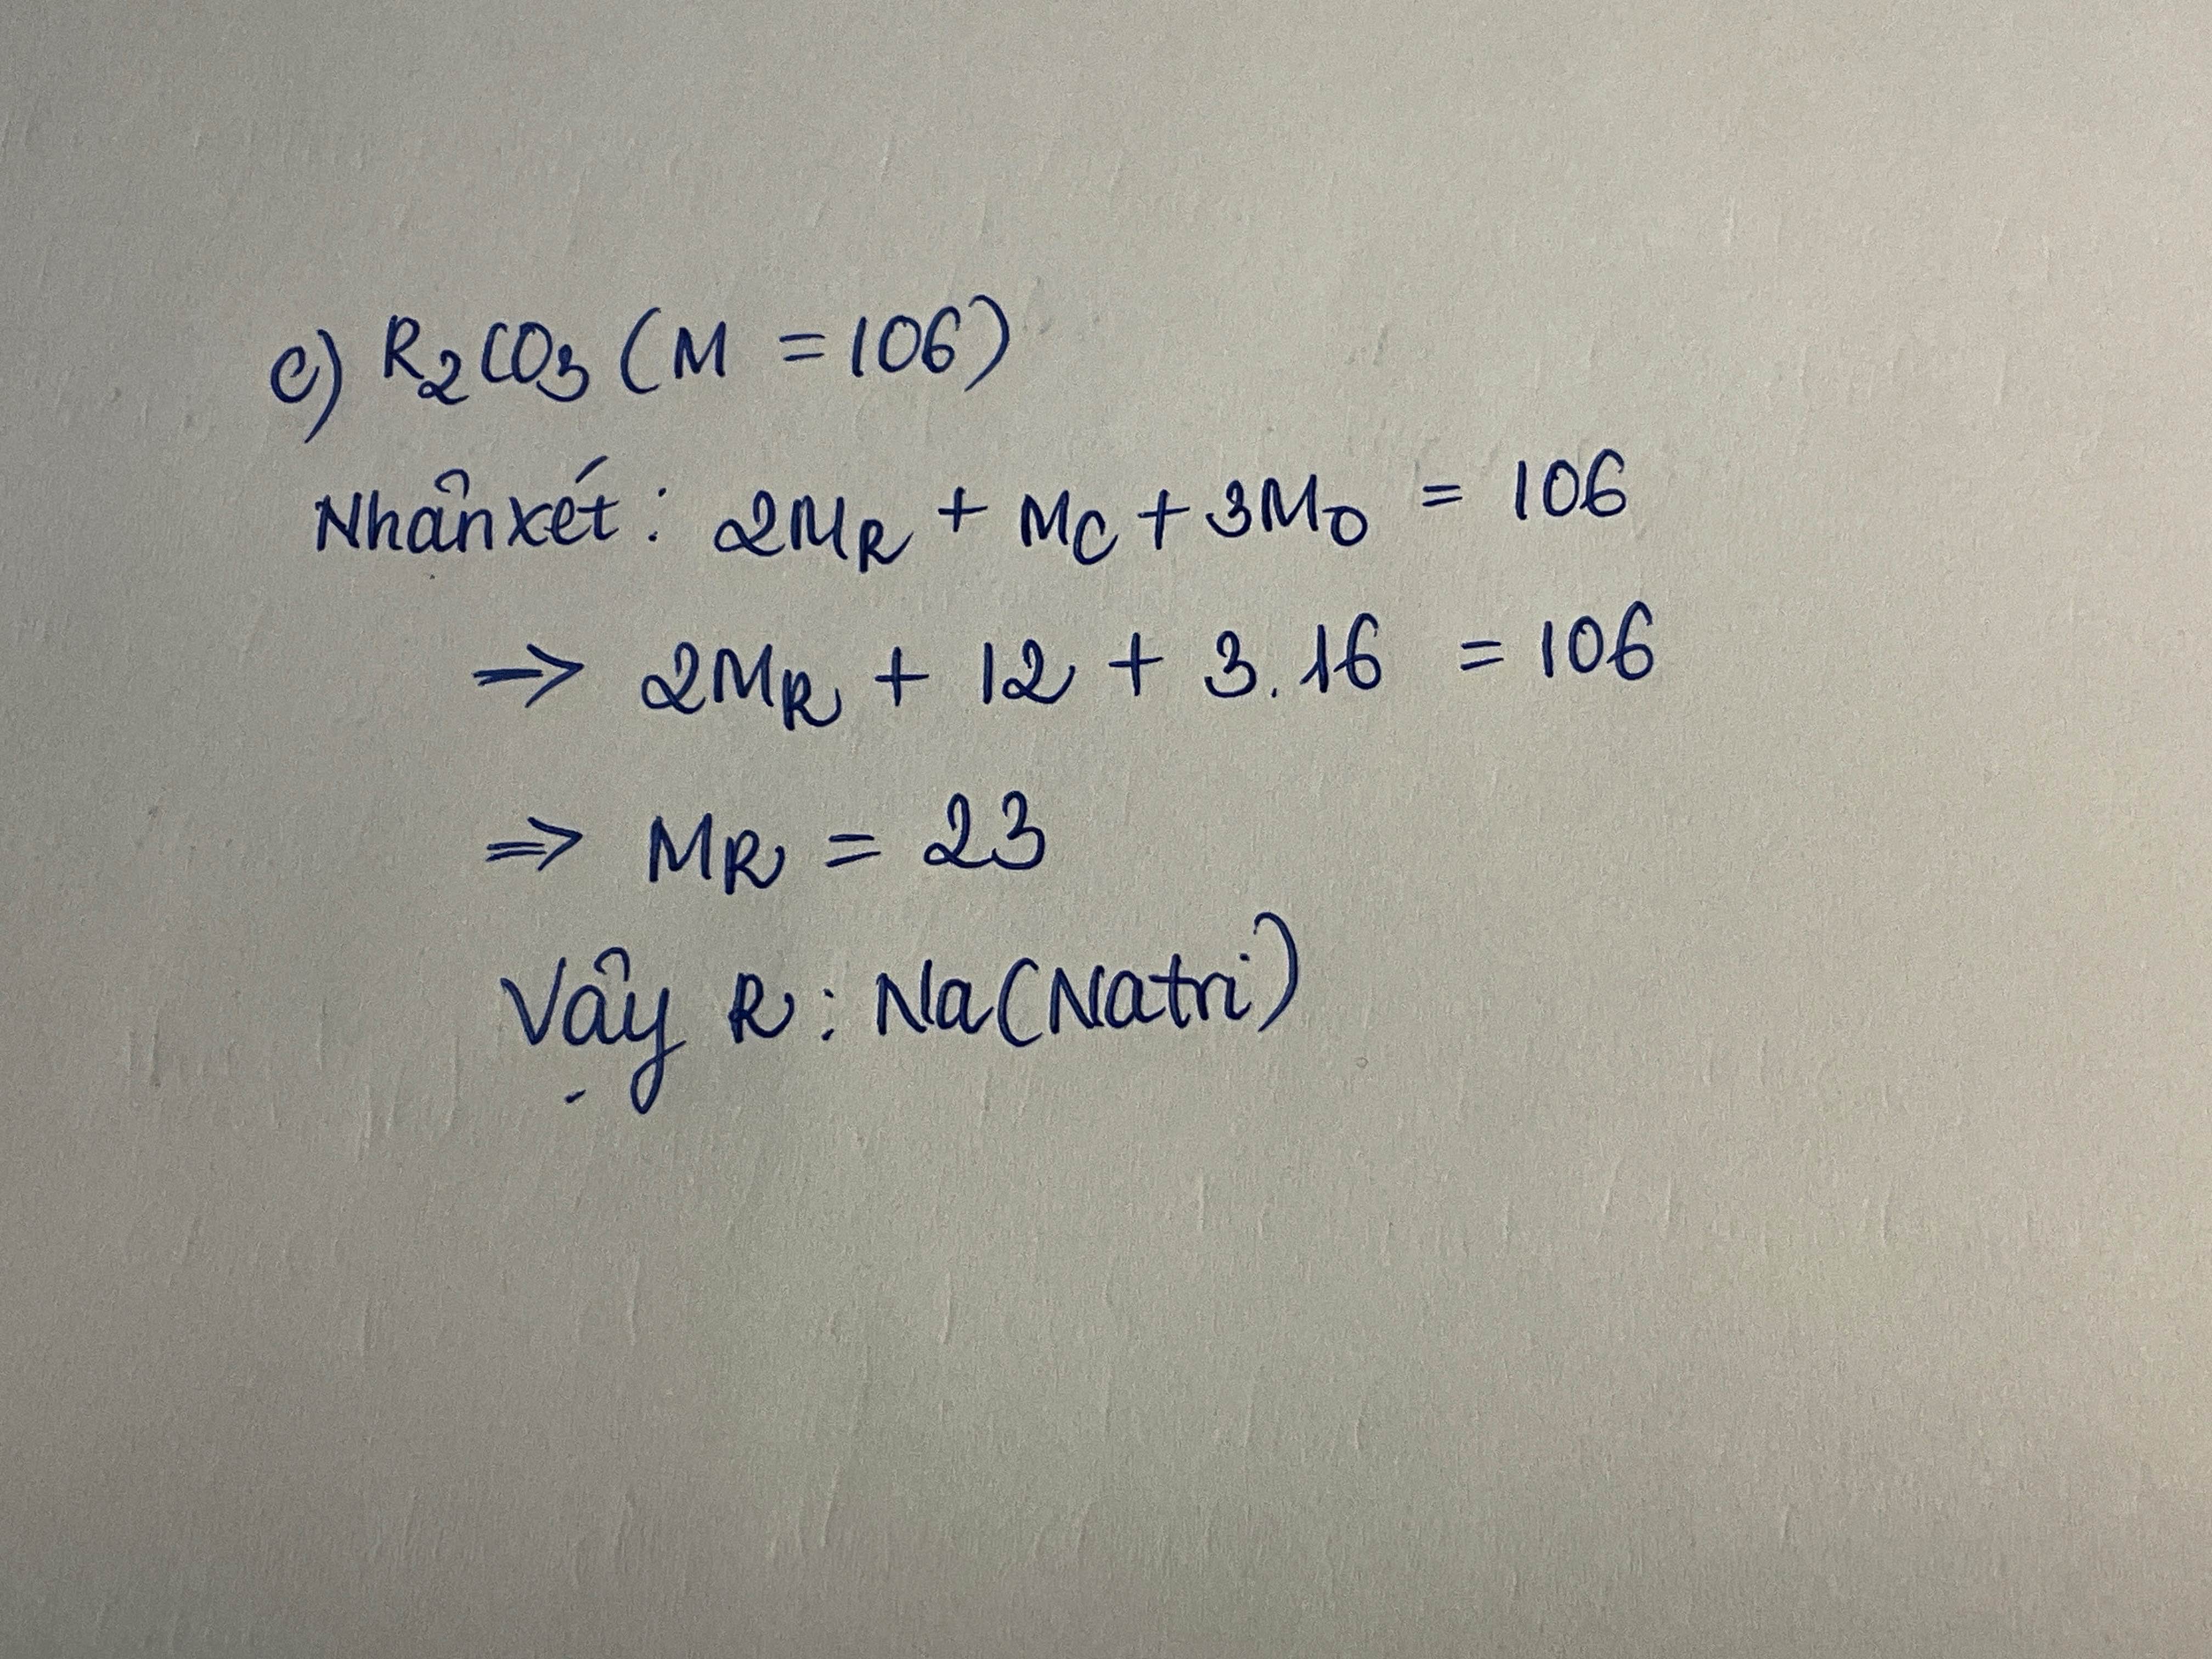 c) R₂CO₃ (M = 106)
Nhân xét: 2MR + MC + 3MO = 106
=> 2MR + 12 + 3.16 = 106
=> MR = 23
Vậy R: Na (Natri)